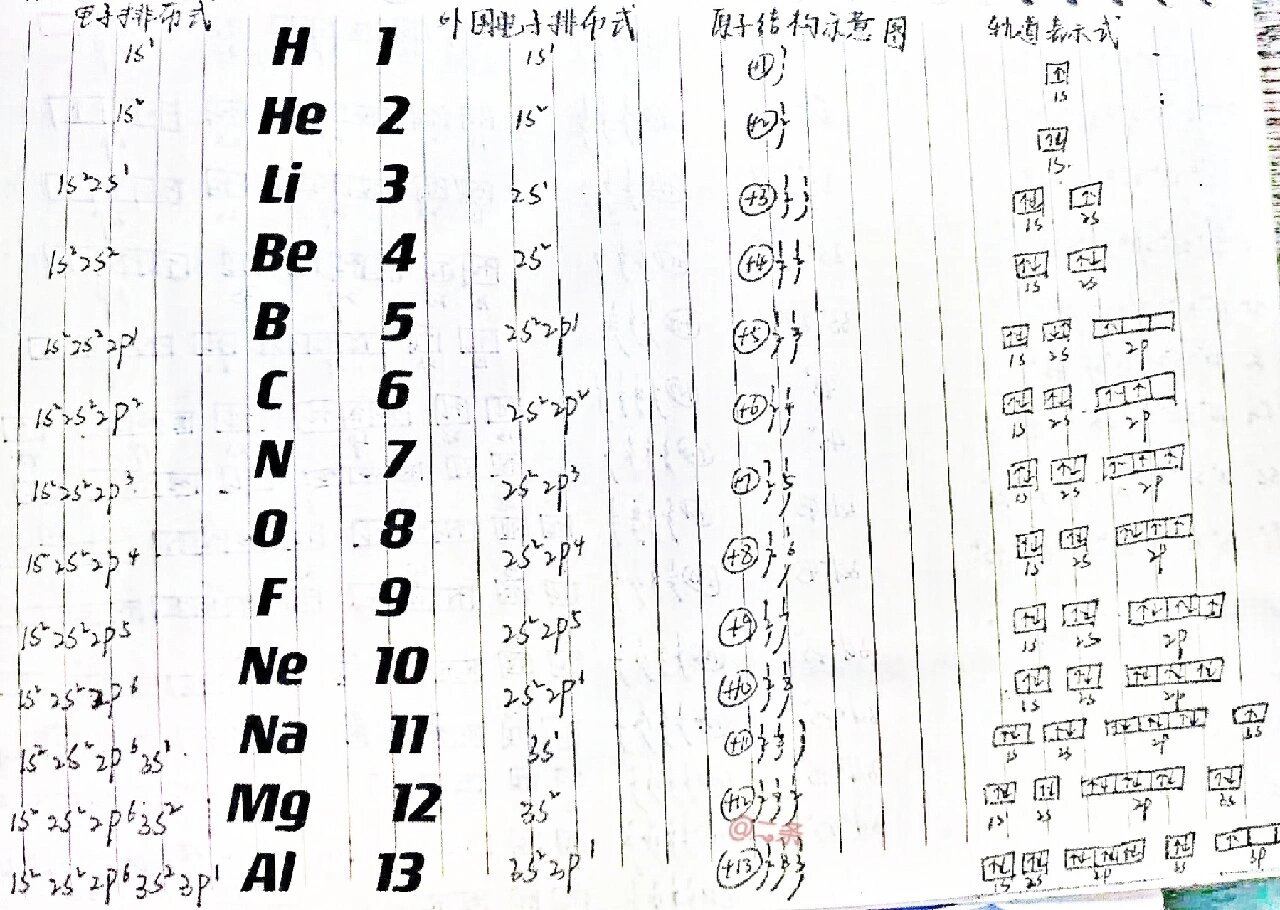 电子排布式 外围电子排布式 原子结构示意图 轨道表示式
1s¹ H 1 1s¹ +1 1 ↑ 1s
1s² He 2 1s² +2 2 ↑↓ 1s
1s²2s¹ Li 3 2s¹ +3 2 1 ↑↓ 1s ↑ 2s
1s²2s² Be 4 2s² +4 2 2 ↑↓ 1s ↑↓ 2s
1s²2s²2p¹ B 5 2s²2p¹ +5 2 3 ↑↓ 1s ↑↓ 2s ↑ 2p
1s²2s²2p² C 6 2s²2p² +6 2 4 ↑↓ 1s ↑↓ 2s ↑ ↑ 2p
1s²2s²2p³ N 7 2s²2p³ +7 2 5 ↑↓ 1s ↑↓ 2s ↑ ↑ ↑ 2p
1s²2s²2p⁴ O 8 2s²2p⁴ +8 2 6 ↑↓ 1s ↑↓ 2s ↑↓ ↑ ↑ 2p
1s²2s²2p⁵ F 9 2s²2p⁵ +9 2 7 ↑↓ 1s ↑↓ 2s ↑↓ ↑↓ ↑ 2p
1s²2s²2p⁶ Ne 10 2s²2p⁶ +10 2 8 ↑↓ 1s ↑↓ 2s ↑↓ ↑↓ ↑↓ 2p
1s²2s²2p⁶3s¹ Na 11 3s¹ +11 2 8 1 ↑↓ 1s ↑↓ 2s ↑↓ ↑↓ ↑↓ 2p ↑ 3s
1s²2s²2p⁶3s² Mg 12 3s² +12 2 8 2 ↑↓ 1s ↑↓ 2s ↑↓ ↑↓ ↑↓ 2p ↑↓ 3s
1s²2s²2p⁶3s²3p¹ Al 13 3s²3p¹ +13 2 8 3 ↑↓ 1s ↑↓ 2s ↑↓ ↑↓ ↑↓ 2p ↑↓ 3s ↑ 3p